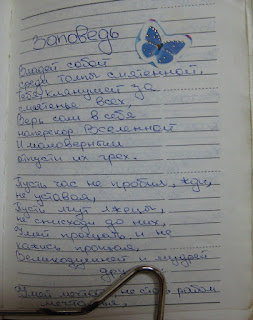 Заповедь
Владей собой
среди толпы смятенной,
Тебя клянущей за
смятенье всех,
Верь сам в себя
наперекор Вселенной
И маловерным
отпусти их грех.
Пусть час не пробил, жди,
не уставая,
Пусть лгут лжецы,
не снисходи до них,
Умей прощать и не
кажись, прощая,
Великодушней и мудрей
Умей мечтать, не став рабом